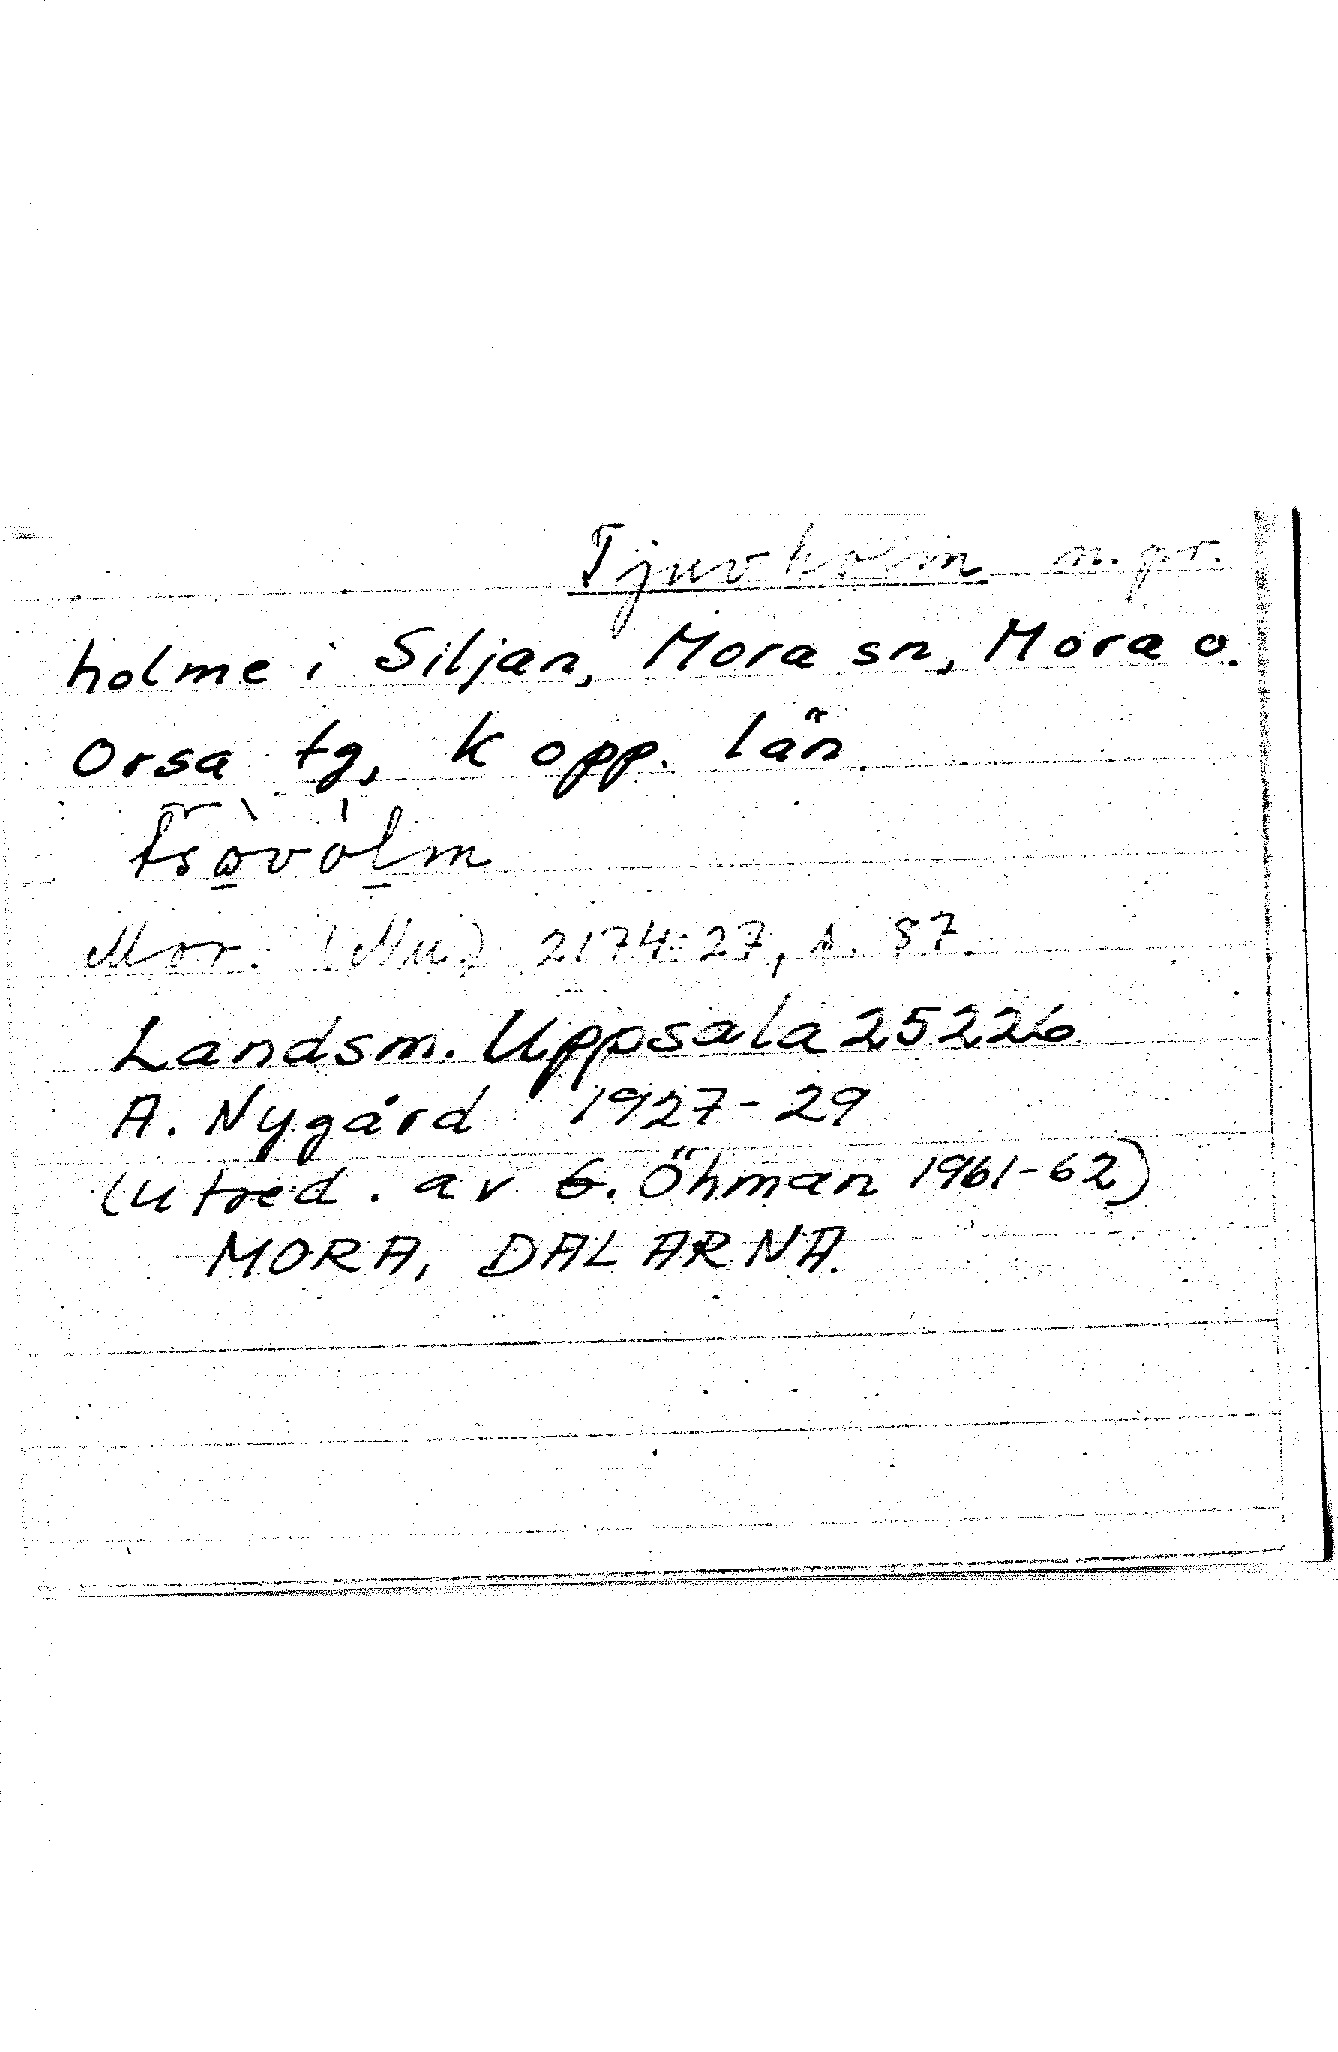 Tjuvholm n. pr.
holme i Siljan, Mora sn, Mora o.
Orsa tg, Kopp. län
Mor. (Nu) 2174:27, s. 87.
Landsm. Uppsala 25226
A. Nygård 1927-29
(utred. av G. Öhman 1961-62)
MORA, DALARNA.